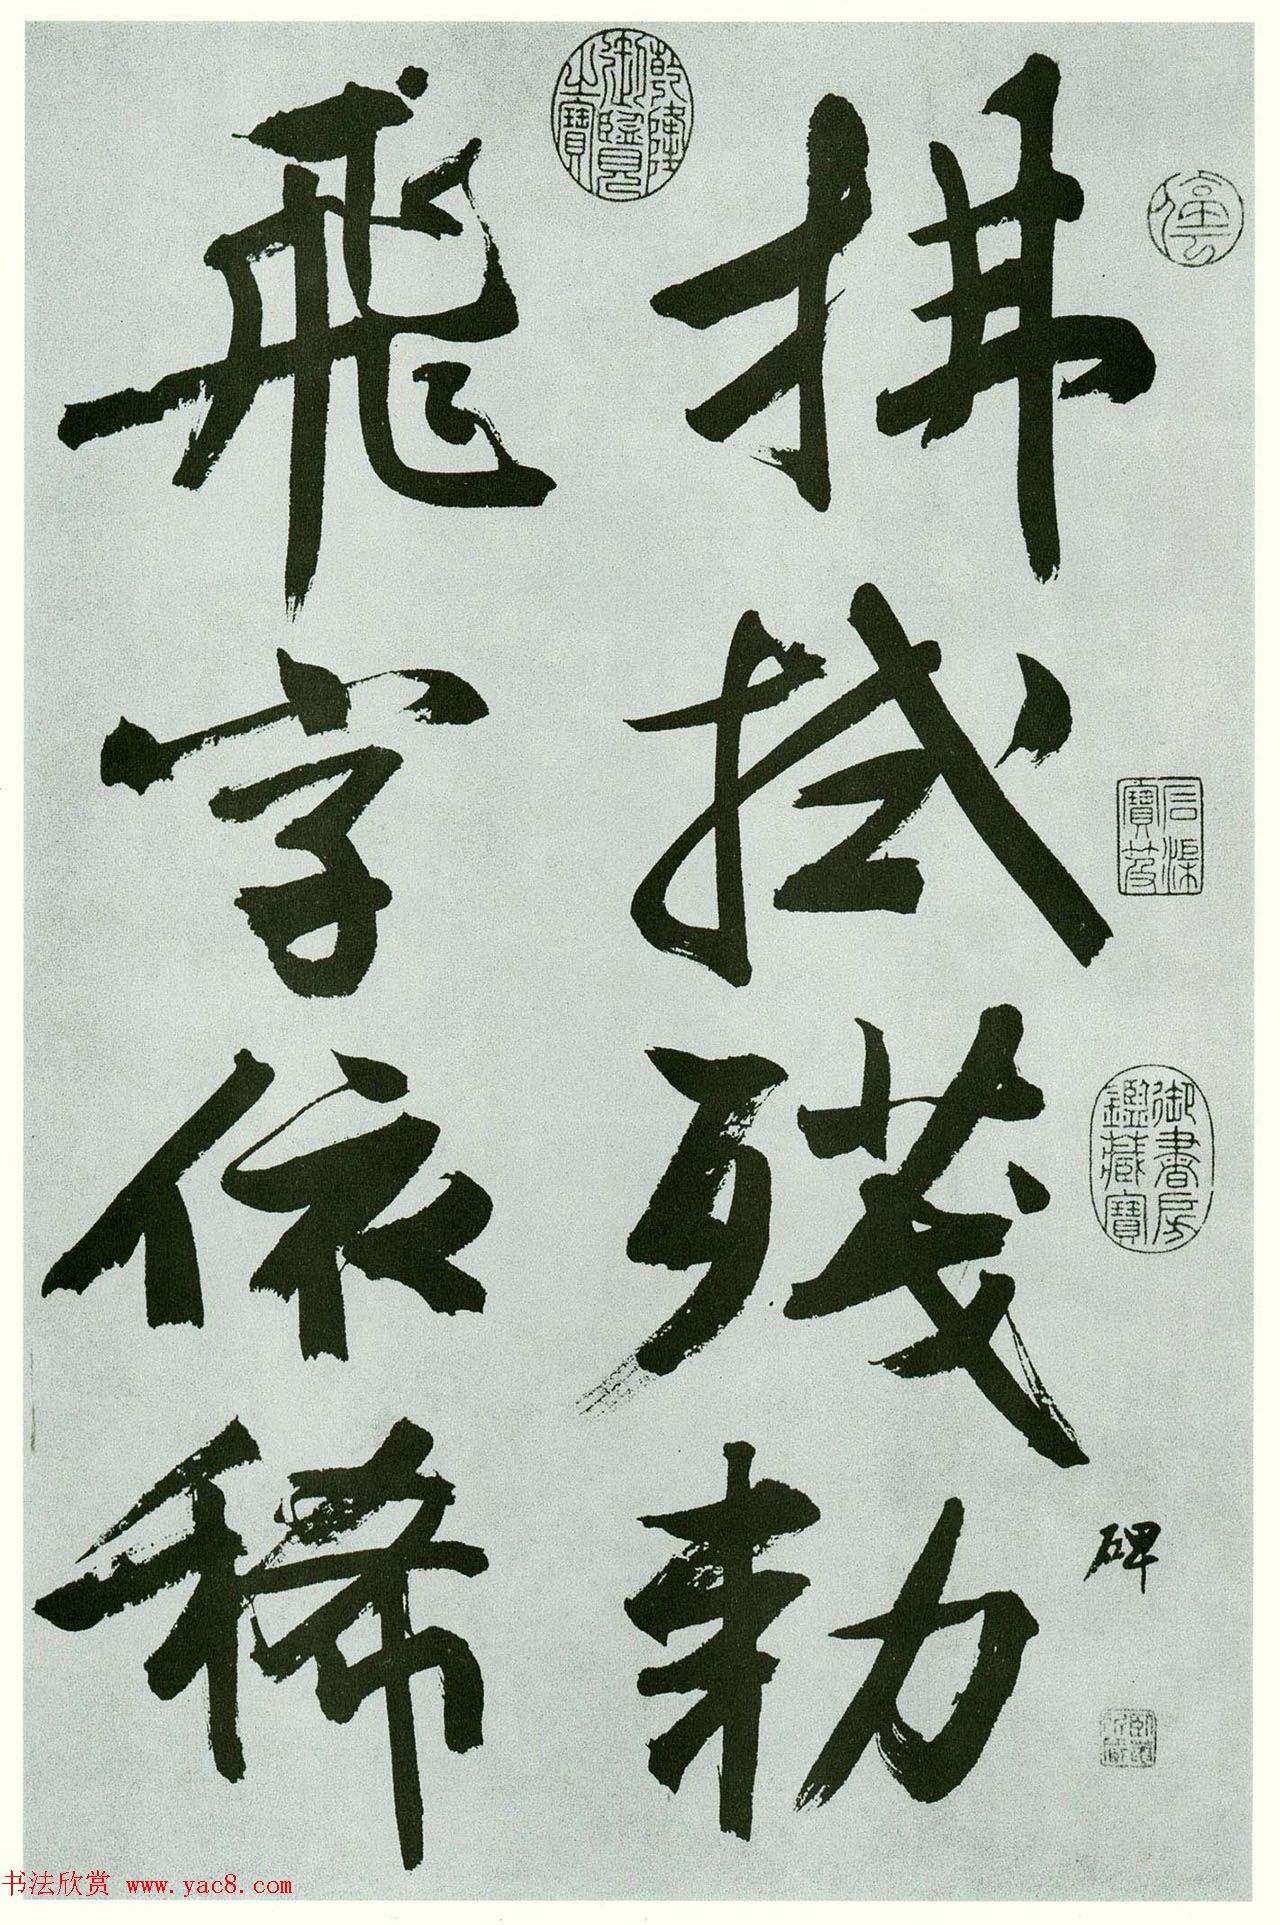 拂拭殘
碑
勅
飛字依稀
乾隆御覽之寶
石渠寶笈
御書房鑑藏寶
书法欣赏 www.yac8.com